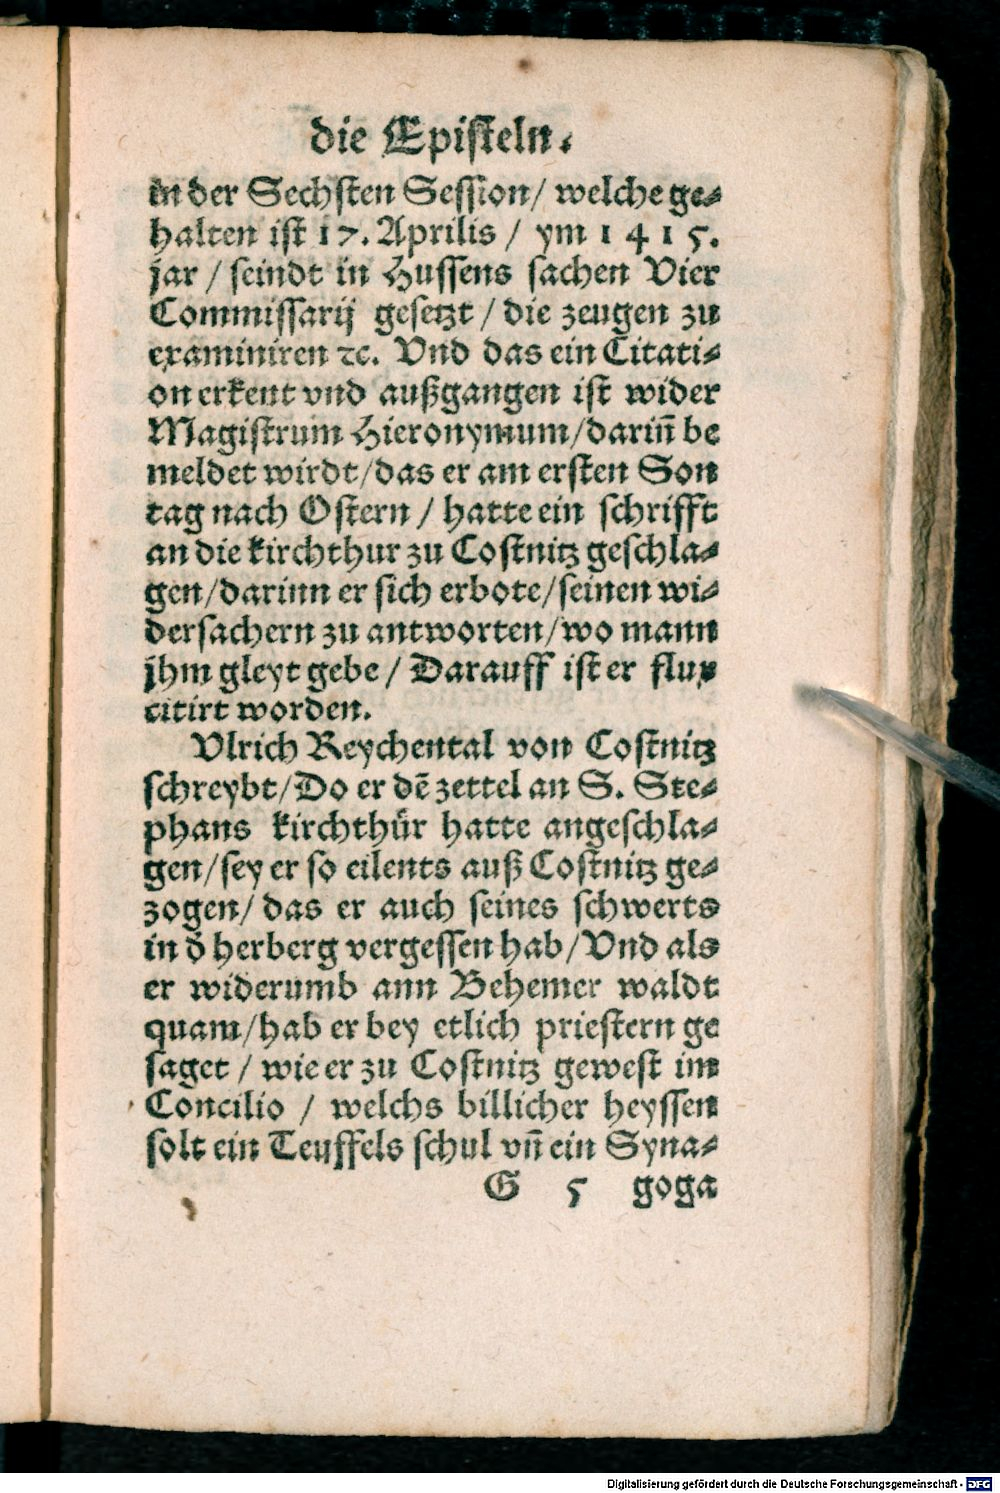 die Episteln.
in der Sechsten Session/ welche ge⸗
halten ist 17. Aprilis / ym 1 4 1 5.
jar / seindt in Hussens sachen Vier
Commissarij gesetzt / die zeugen zu
examiniren ꝛc. Vnd das ein Citati⸗
on erkent vnd außgangen ist wider
Magistrum Hieronymum/darin̄ be
meldet wirdt/das er am ersten Son
tag nach Ostern / hatte ein schrifft
an die kirchthur zu Costnitz geschla⸗
gen/darinn er sich erbote/seinen wi⸗
dersachern zu antworten/wo mann
jhm gleyt gebe / Darauff ist er flux
citirt worden.
Vlrich Reychental von Costnitz
schreybt/Do er dē zettel an S. Ste⸗
phans kirchthür hatte angeschla⸗
gen/sey er so eilents auß Costnitz ge⸗
zogen/ das er auch seines schwerts
in d̄ herberg vergessen hab/Vnd als
er widerumb ann Behemer waldt
quam/hab er bey etlich priestern ge
saget / wie er zu Costnitz gewest im
Concilio / welchs billicher heyssen
solt ein Teuffels schul vn̄ ein Syna⸗
G 5 goga
Digitalisierung gefördert durch die Deutsche Forschungsgemeinschaft - DFG